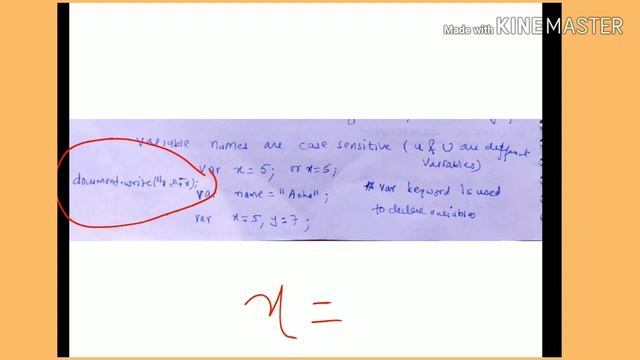 Made with KINEMASTER
variable names are case sensitive (u & U are different variables)
var x=5; or x=5;
document.write("x="+x);
var name="Asha";
* var keyword is used to declare variables
var x=5, y=7;
x =